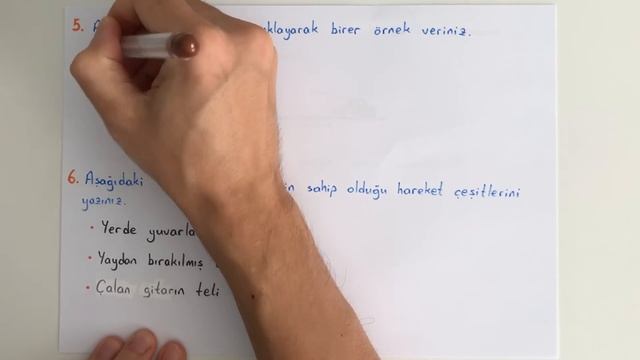 5. birer örnek veriniz.
6. Aşağıdaki sahip olduğu hareket çeşitlerini
yazınız.
• Yerde
• Yaydan bırakılmış
• Çalan gitarın teli